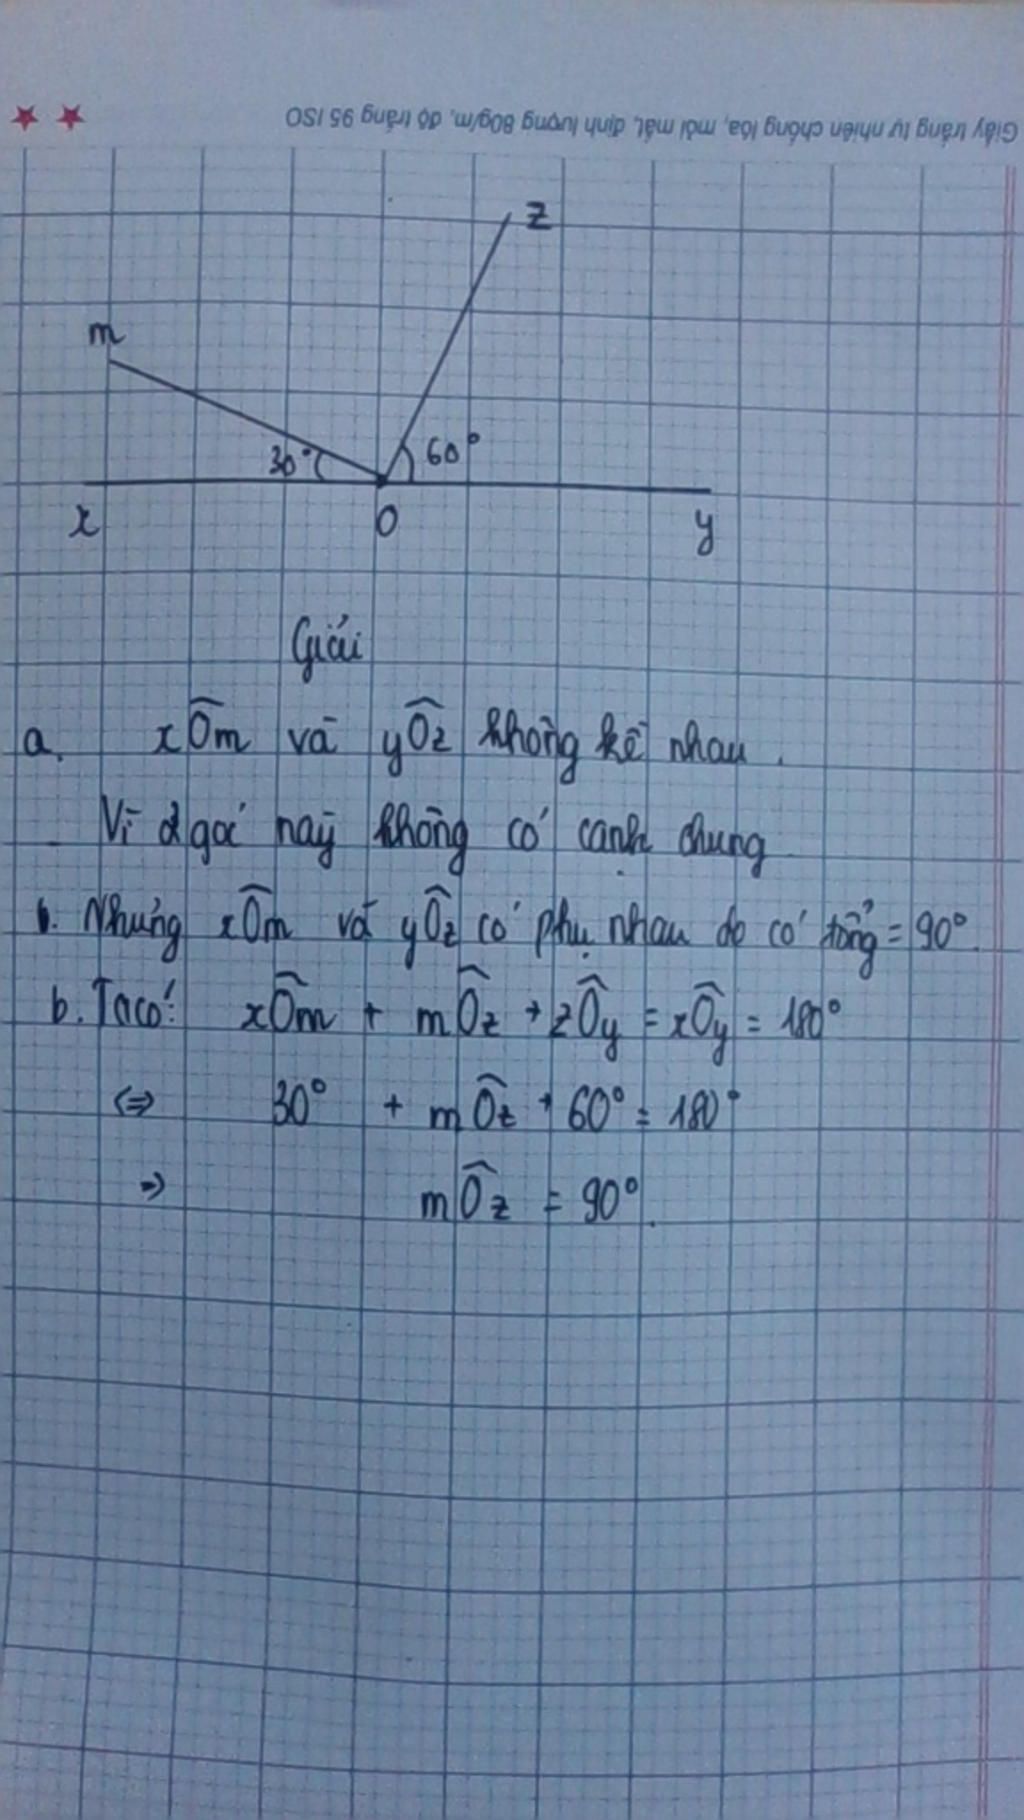 Giấy trắng tự nhiên chống lóa, mỏi mắt, định lượng 80g/m, độ trắng 95 ISO
z
m
30°
60°
x
O
y
Giải
a. xÔm và yÔz không kề nhau.
Vì 2 góc này không có cạnh chung
b. Nhưng xÔm và yÔz có phụ nhau do có tổng = 90°.
b. Ta có: xÔm + mÔz + zÔy = xÔy = 180°
<=> 30° + mÔz + 60° = 180°
=> mÔz = 90°.